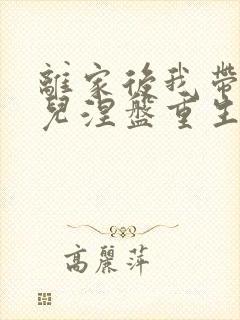 離家後我帶
兒涅盤重生
高麗萍